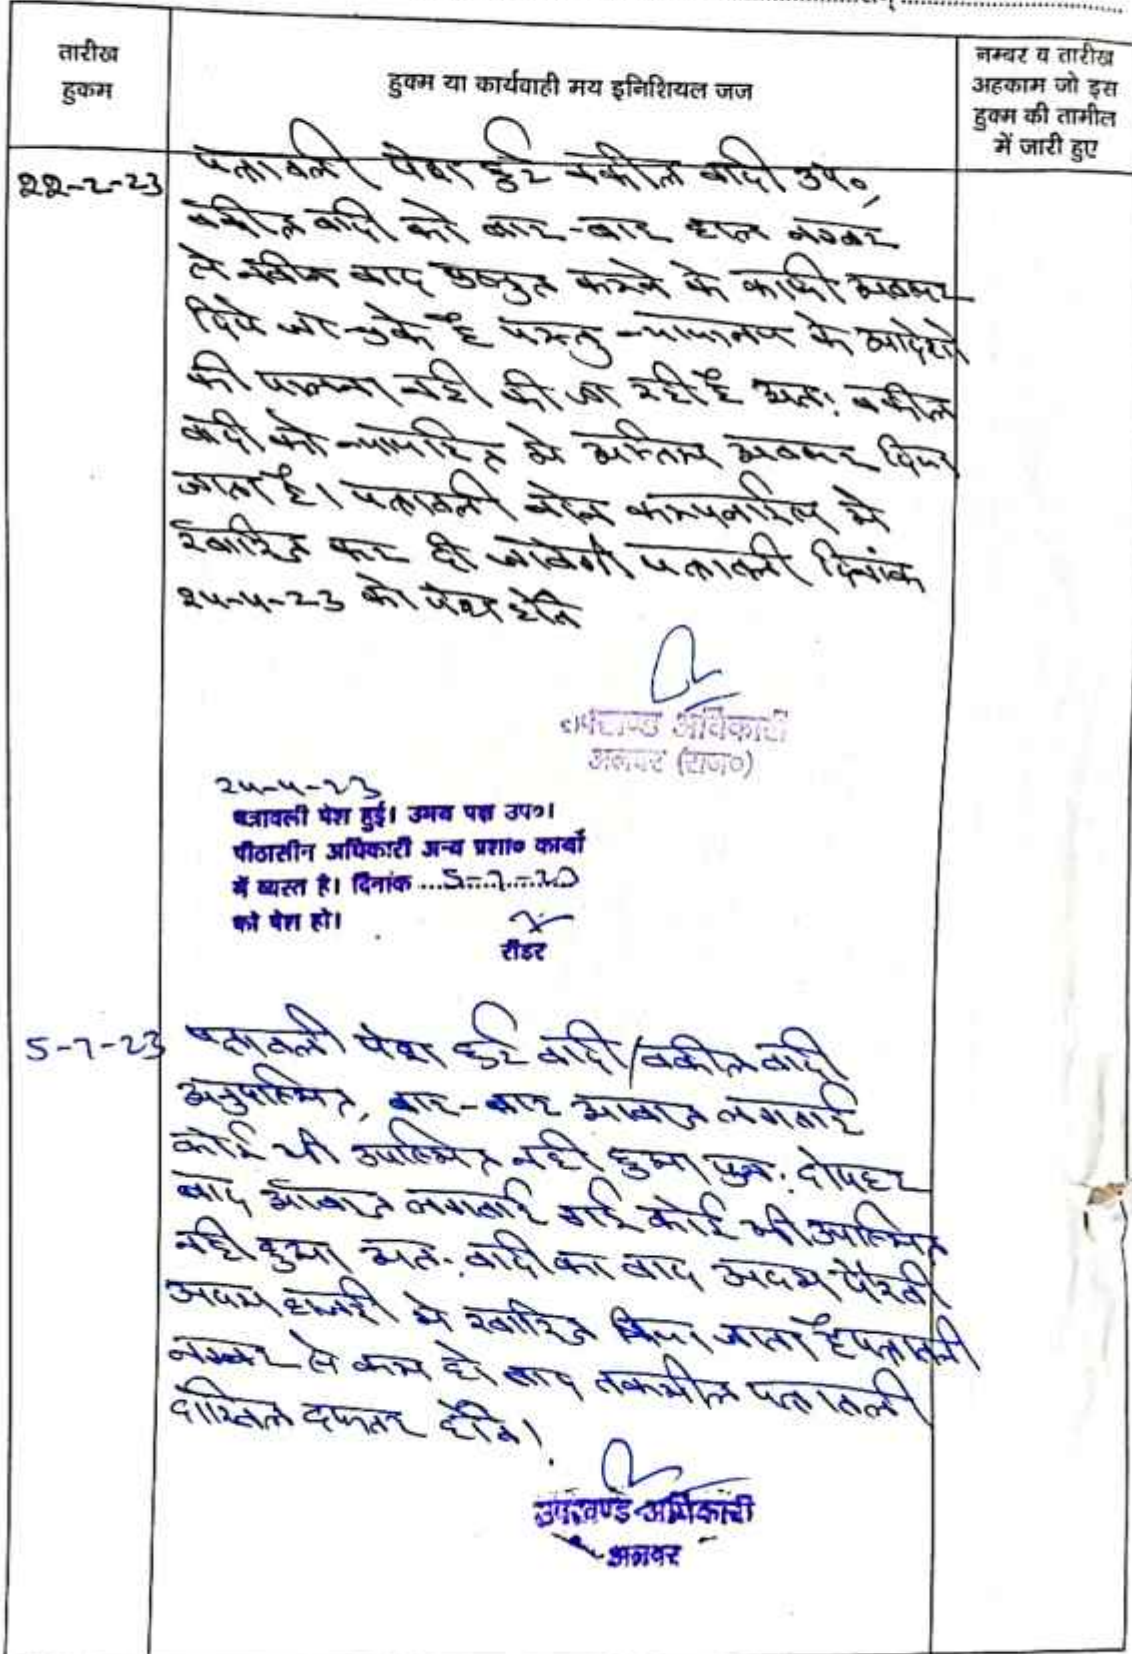 तारीख
हुकम
हुक्म या कार्यवाही मय इनिशियल जज
नम्बर व तारीख
अहकाम जो इस
हुक्म की तामील
में जारी हुए
22-2-23
पत्रावली पेश हुई वकील वादी उप०,
वकील वादी को बार-बार हाल नम्बर
से वाद प्रस्तुत करने के काफी अवसर
दिये जा चुके है परन्तु न्यायालय के आदेशो
की पालना नही की जा रही है अतः वकील
वादी को न्यायहित मे अन्तिम अवसर दिया
जाता है। पत्रावली मे
खारिज कर दी जावेगी पत्रावली दिनांक
24-4-23 को पेश होवे
उपखण्ड अधिकारी
अलवर (राज०)
24-4-23
पत्रावली पेश हुई। उभय पक्ष उप०।
पीठासीन अधिकारी अन्य प्रशा० कार्यो
में व्यस्त है। दिनांक ...5-7-23
को पेश हो।
रीडर
5-7-23
पत्रावली पेश हुई वादी/वकील वादी
अनुपस्थित, बार-बार आवाज लगवाई
कोई भी उपस्थित नही हुआ पुन: दोपहर
बाद आवाज लगवाई गई कोई भी उपस्थित
नही हुआ अत: वादी का वाद अदम पैरवी
अदम हाजरी मे खारिज किया जाता है पत्रावली
नम्बर से कम हो बाद तकमील पत्रावली
दाखिल दफ्तर होवे।
उपखण्ड अधिकारी
अलवर